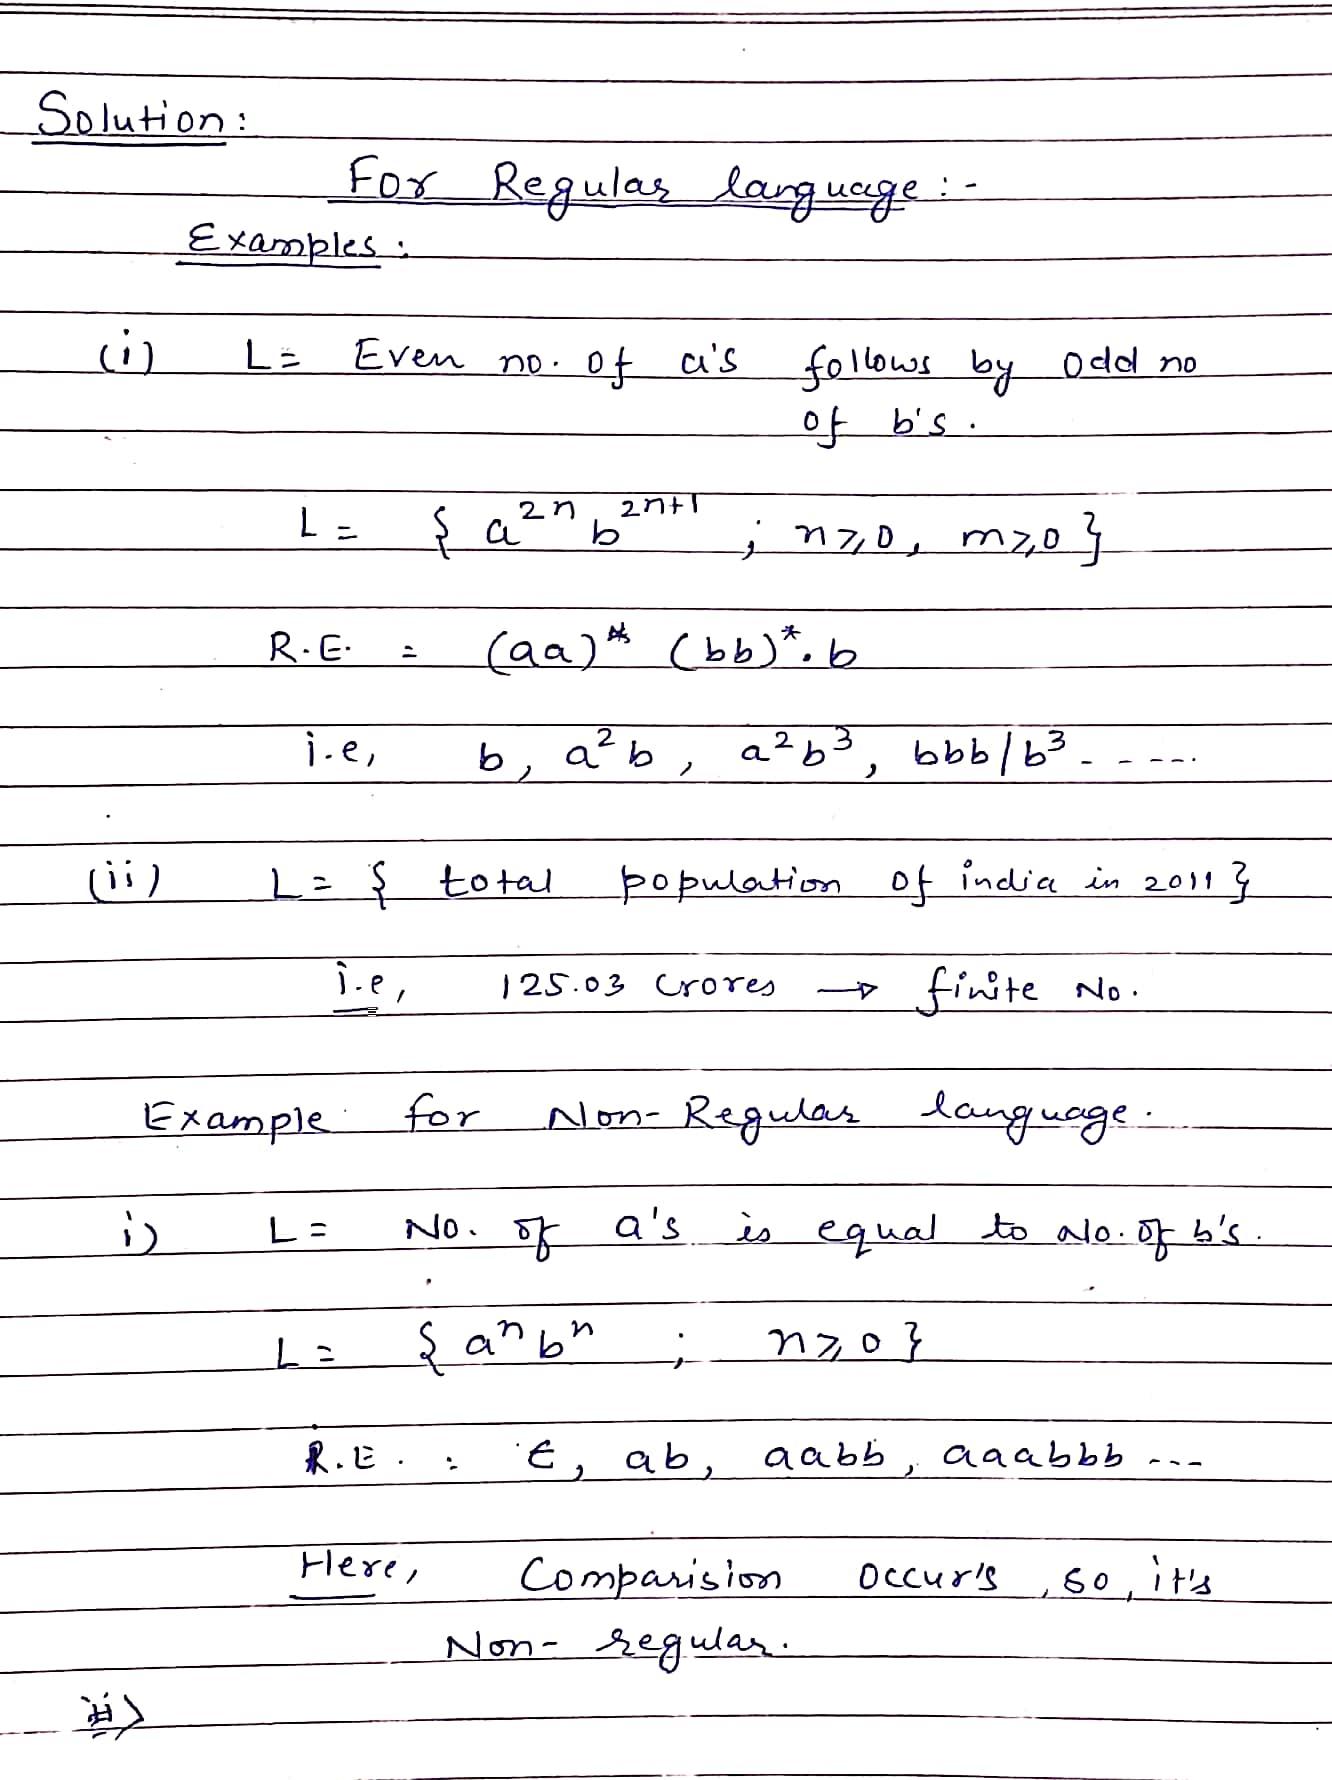 Solution:
For Regular language:-
Examples:
(i) L= Even no. of a's follows by odd no
of b's.
L= { a²ⁿ b²ⁿ⁺¹ ; n≥0, m≥0 }
R.E. = (aa)* (bb)*.b
i.e, b, a²b, a²b³, bbb/b³ - - ---.
(ii) L= { total population of india in 2011 }
i.e, 125.03 crores → finite No.
Example for Non-Regular language.
i) L= No. of a's is equal to No. of b's.
L= { aⁿ bⁿ ; n≥0 }
R.E. : ∈, ab, aabb, aaabbb ---
Here, Comparision occur's, so, it's
Non-regular.
ii)